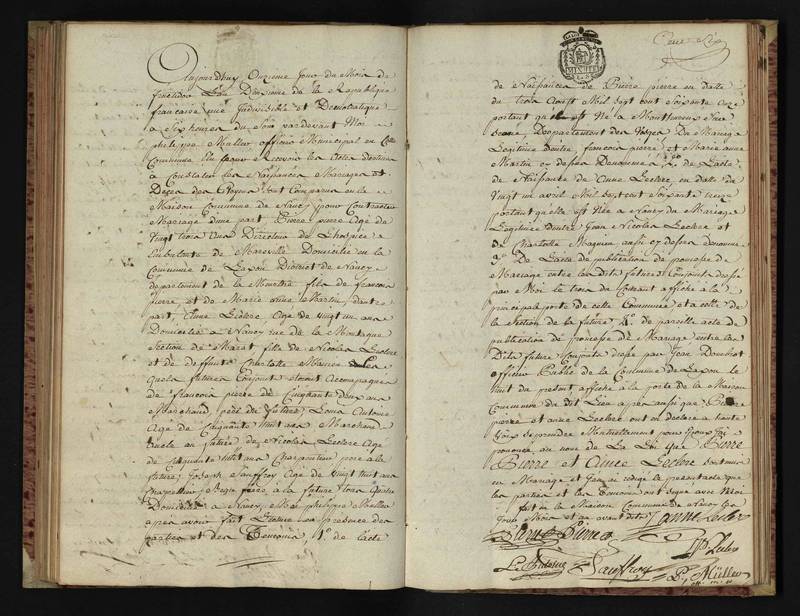 Aujourd'huy Onzieme jour du Mois de
fructidor L'an Deuxieme de la Republique
française une Indivisible et Democratique
a six heures du Soir pardevant Moi
philippe Muller officier Municipal en Cette
Commune Elu pour Recevoir les Actes destinés
a Constater les Naissances Mariages et
Deces des Citoyens, Est Comparus en la
Maison Commune de Nancy pour Contracter
Mariage d'une part Pierre pierre Agé de
Vingt trois ans Directeur de L'hospice
de Mareville Domicilié en la
Commune de Laxou District de Nancy
departement de la Meurthe fils de francois
pierre, et de Marie anne Martin, d'autre
part, Anne Leclerc Agé de Vingt un ans
Domiciliée a Nancy rue de la Montagne
Section de Marat fille de Nicolas Leclerc
et de deffunte Charlotte
quels futurs Conjoints etoient Accompagnés
de francois pierre de Cinquante deux ans
Marchand, père du futur, Louis Antoine
Agé de Cinquante huit ans Marchand
oncle au futur, de Nicolas Leclerc Agé
de Cinquante huit ans Charpentier pere a la
future, Joseph Sauffroy Agé de Vingt huit ans
Chapellier, Beau frère a la future tous quatre
Domiciliés a Nancy, Moi philippe Muller
apres avoir fait Lecture en presence des
parties et des Temoins, 1°. de l'acte
de Naissance de Pierre pierre en datte
du trois Aoust Mil Sept Cent Soixante onze
portant qu'il est Né a Monthureux
Departement des Vosges Du Mariage
Legitime d'entre francois pierre et Marie anne
Martin cy dessus Denommés 2°. de L'acte
de Naissance de Anne Leclerc en datte du
Vingt un avril Mil Sept Cent Soixante treize
portant qu'elle est Née a Nancy du Mariage
Legitime d'entre Jean Nicolas Leclerc et
de Charlotte Magnien aussi cy dessus denommés
3°. De L'acte de publication de promesse de
Mariage entre les Dits futurs Conjoints dressé
par Moi le trois du Courant affiché a la
principale porte de cette Commune et a celle de
la Section de la future, 4°. de pareille acte de
publication de promesse de Mariage entre les
Dits futurs Conjoints dressé par Jean
officier Public de la Commune de Laxou le
huit du present affiché a la porte de la Maison
Commune du dit Lieu apres aussi que Pierre
pierre et anne Leclerc ont eu declaré a haute
Voix se prendre Mutuellement pour Epoux J'ai
prononcé au nom de La Loi que Pierre
Pierre et Anne Leclerc sont unis
en Mariage et J'en ai redigé le present acte que
les parties et les temoins ont Signé avec Moi
fait en la Maison Commune de Nancy les
Jour Mois et an avant dits
Janne Lecler
Pierre
Ls Antoine Sauffroy P. Müller